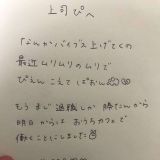 上司ぴへ
「なんかバイブス上げてくの
最近ムリムリのムリで
ぴえんこえてぱおん
もうまじ退職しか勝たんから
明日からはおうちカフェで
働くことにしました